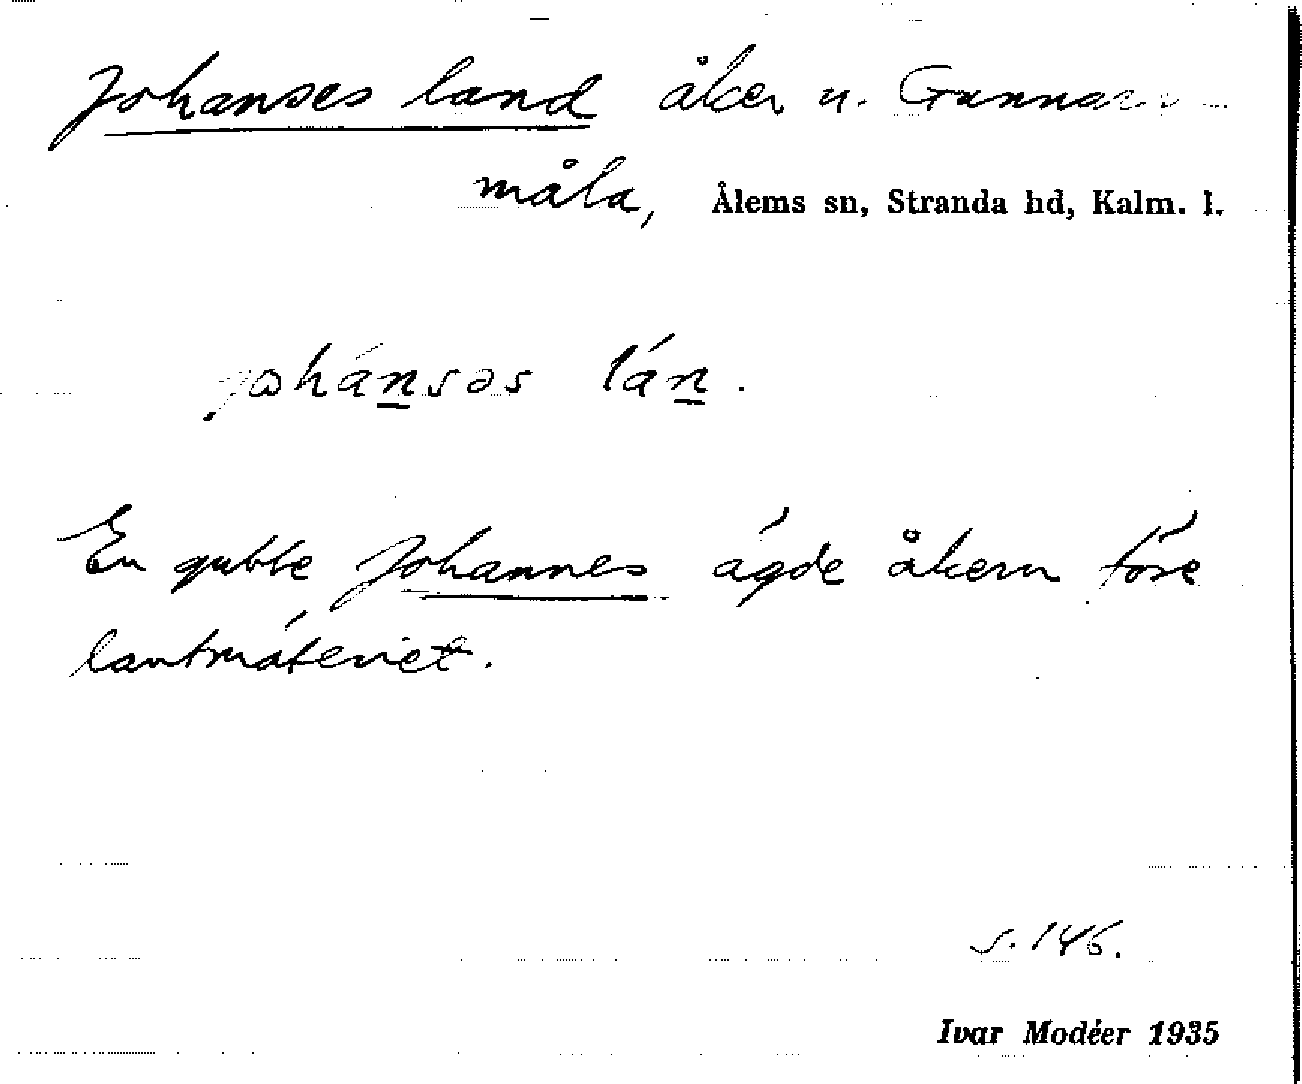 Johanses land åker u. Gunnars-
måla, Ålems sn, Stranda hd, Kalm. l.
johánsəs lán.
En gubbe Johannes ägde åkern före
lantmäteriet.
s. 146.
Ivar Modéer 1935